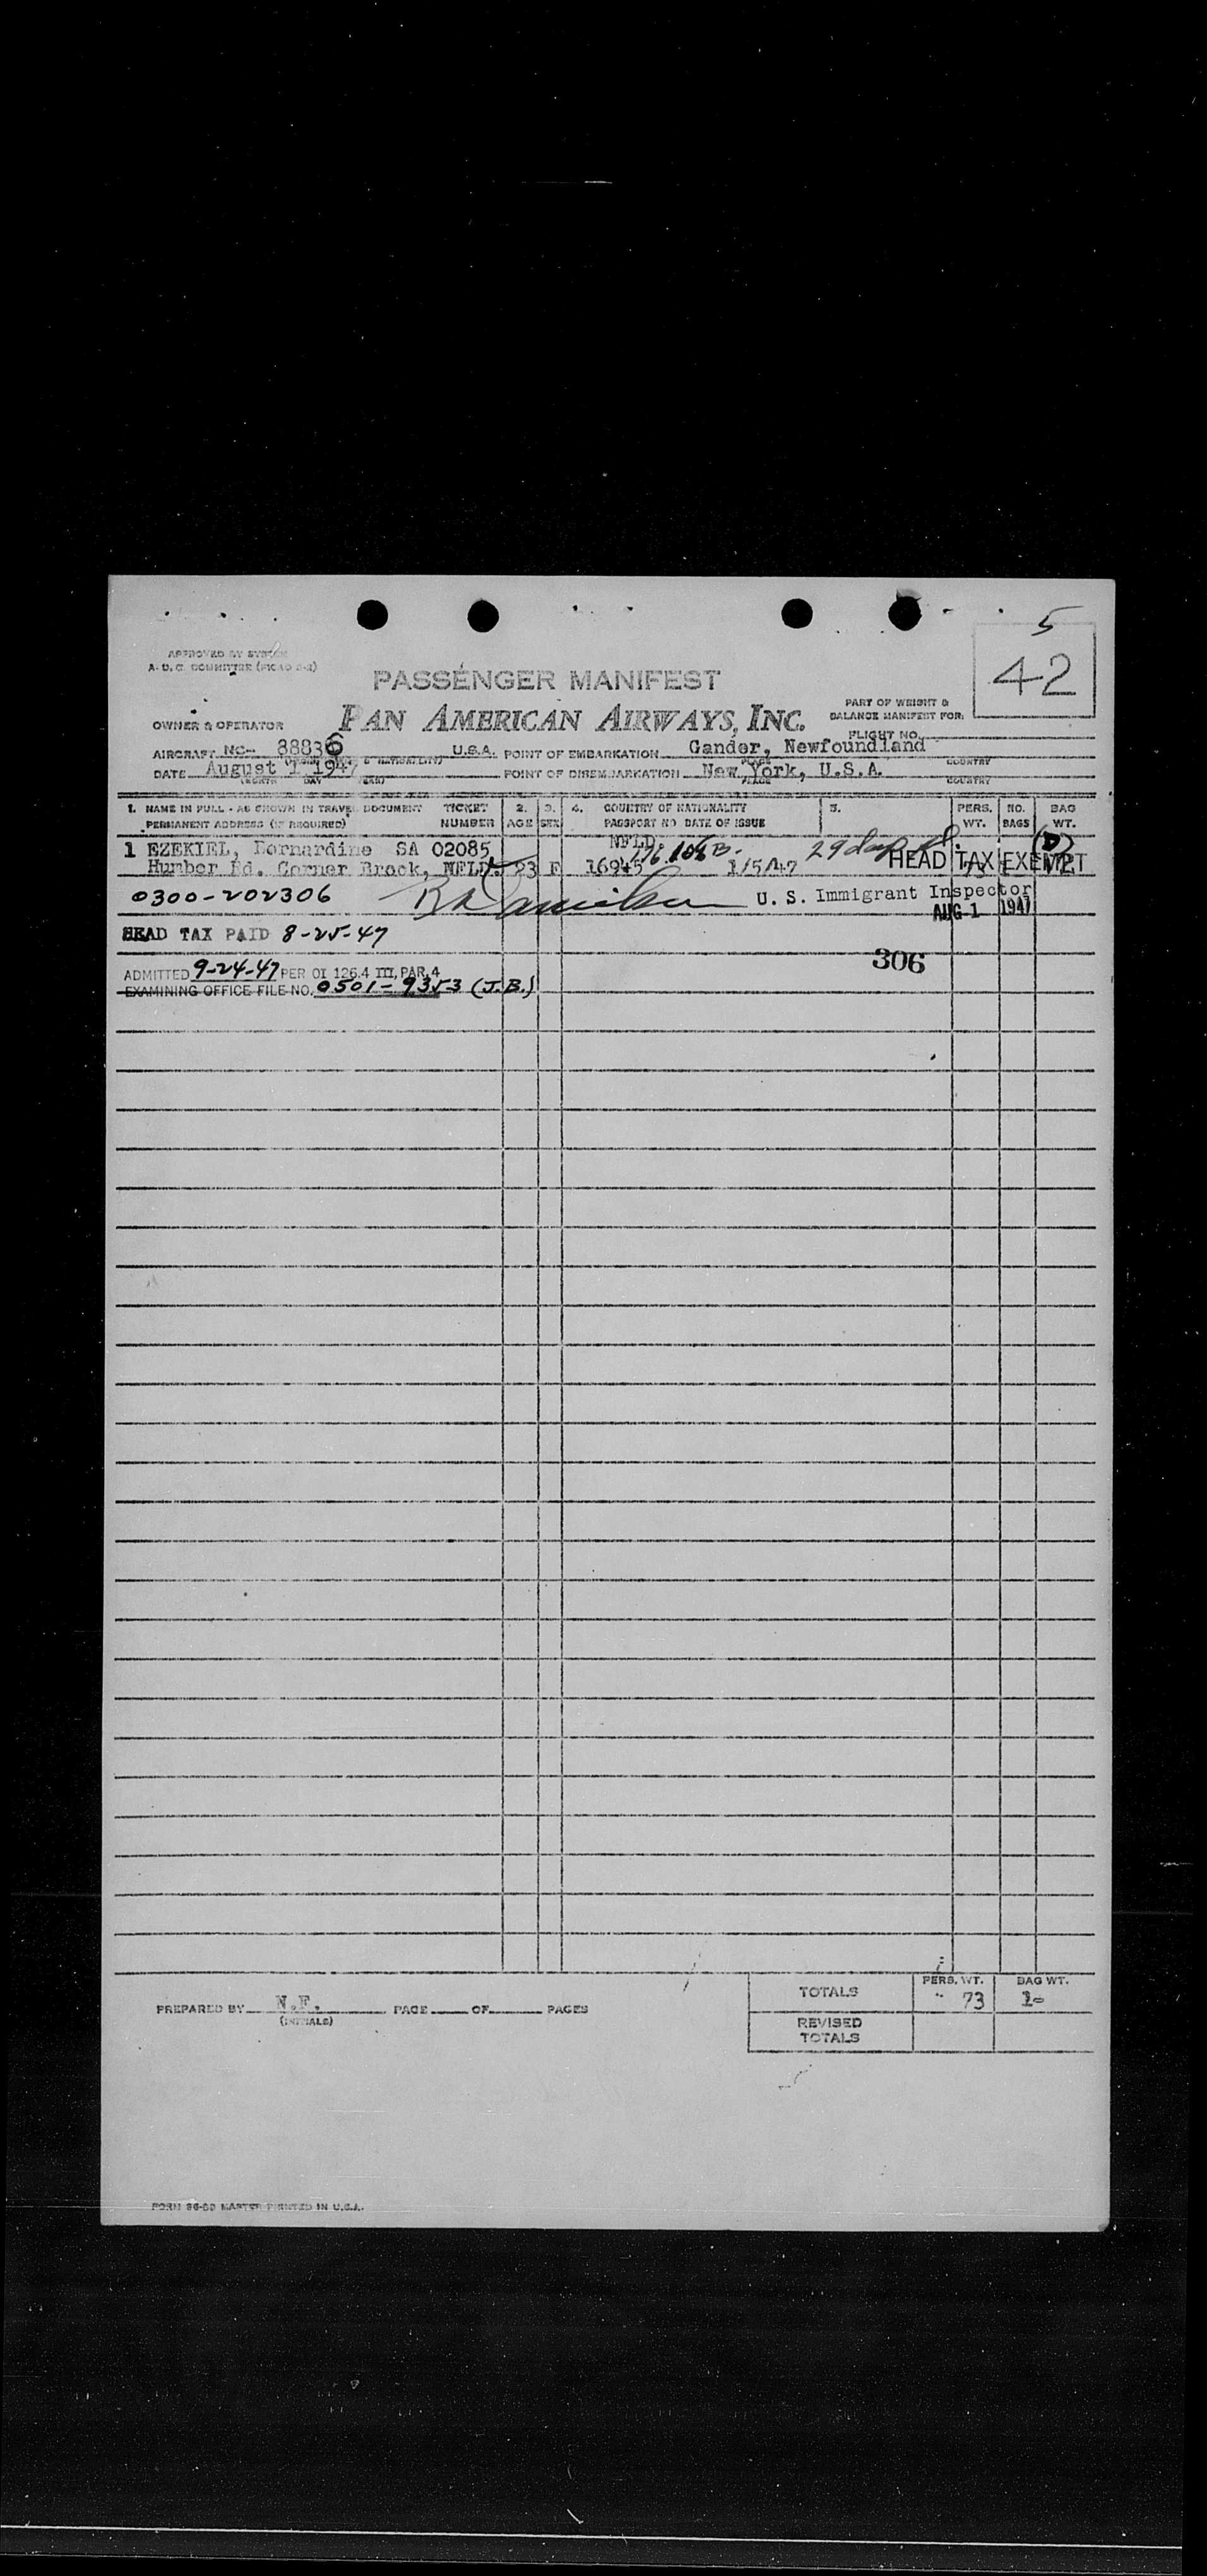 5
42
APPROVED BY SYSTEM
A. D. C. COMMITTEE (PICAO 2-2)
PASSENGER MANIFEST
PART OF WEIGHT &
BALANCE MANIFEST FOR:
FLIGHT NO.
OWNER & OPERATOR PAN AMERICAN AIRWAYS, INC.
AIRCRAFT NC- 88836 U.S.A. POINT OF EMBARKATION Gander, Newfoundland
PLACE COUNTRY
DATE August 1, 1947 POINT OF DISEMBARKATION New York, U.S.A.
(MONTH DAY YEAR) PLACE COUNTRY
1. NAME IN FULL - AS SHOWN IN TRAVEL DOCUMENT TICKET 2. 3. 4. COUNTRY OF NATIONALITY 5. PERS. NO. BAG
PERMANENT ADDRESS (IF REQUIRED) NUMBER AGE SEX PASSPORT NO DATE OF ISSUE WT. BAGS WT.
1 EZEKIEL, Bernardine SA 02085 NFLD. 29 days
Humber Rd. Corner Brook, NFLD. 23 F 16945 1/5/47 HEAD TAX EXEMPT
0300-202306 U. S. Immigrant Inspector
AUG-1 1947
HEAD TAX PAID 8-25-47
306
ADMITTED 9-24-47 PER OI 126.4 III, PAR. 4
EXAMINING OFFICE FILE NO. 0501-9353 (J.B.)
PERS. WT. BAG WT.
TOTALS 73
PREPARED BY N.F. PAGE OF PAGES
(INITIALS)
REVISED
TOTALS
FORM 36-89 MASTER PRINTED IN U.S.A.